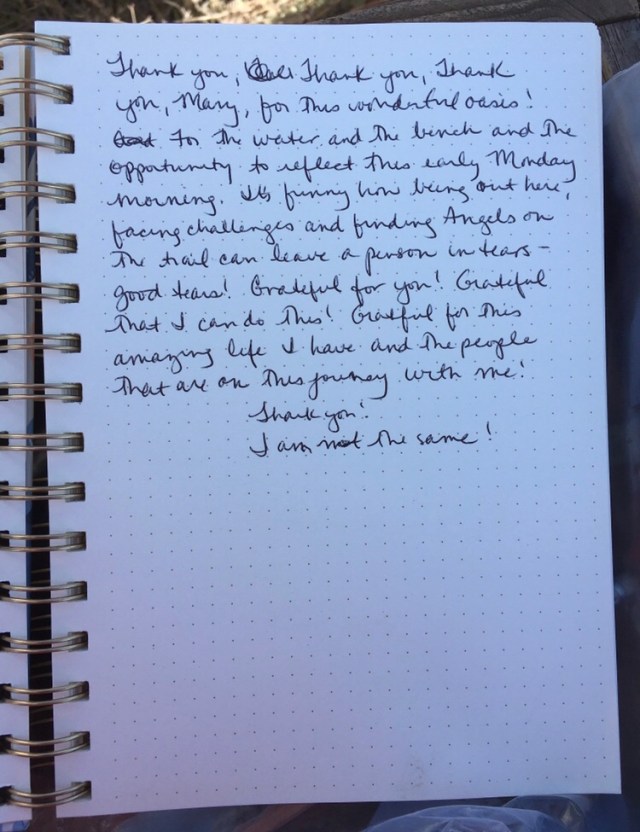 Thank you, Thank you, Thank
you, Mary, for this wonderful oasis!
for the water and the bench and the
opportunity to reflect this early Monday
morning. It's funny how being out here,
facing challenges and finding Angels on
the trail can leave a person in tears -
good tears! Grateful for you! Grateful
that I can do this! Grateful for this
amazing life I have and the people
that are on this journey with me!
Thank you!
I am not the same!